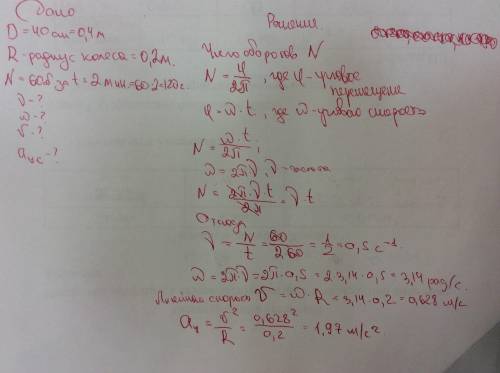 Дано
D = 40 см = 0,4 м
R - радиус колеса = 0,2 м.
N = 60 об за t = 2 мин = 60·2=120 с.
ν - ?
ω - ?
v - ?
a цс - ?
Решение
Число оборотов N
N = φ/2π, где φ - угловое
перемещение
φ = ω·t, где ω - угловая скорость
N = ω·t/2π;
ω = 2πν, ν - частота
N = 2π·ν·t/2π = ν·t
Отсюда
ν = N/t = 60/2·60 = 1/2 = 0,5 с⁻¹.
ω = 2πν = 2π·0,5 = 2·3,14·0,5 = 3,14 рад/с.
Линейная скорость v = ω·R = 3,14·0,2 = 0,628 м/с
aц = v²/R = 0,628²/0,2 = 1,97 м/с².